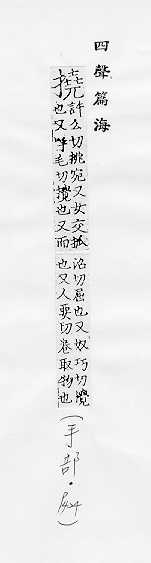 四聲篇海
撓許么切挑宛又女交抓
也又乎毛切攪也又而
沼切屈也又奴巧切攪
也又人要切卷取物也
(手部.